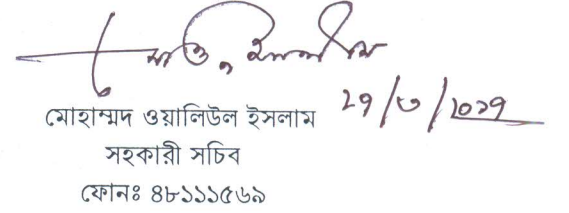 ২৭/৩/২০১৭
মোহাম্মদ ওয়ালিউল ইসলাম
সহকারী সচিব
ফোনঃ ৪৮১১১৫৬৯